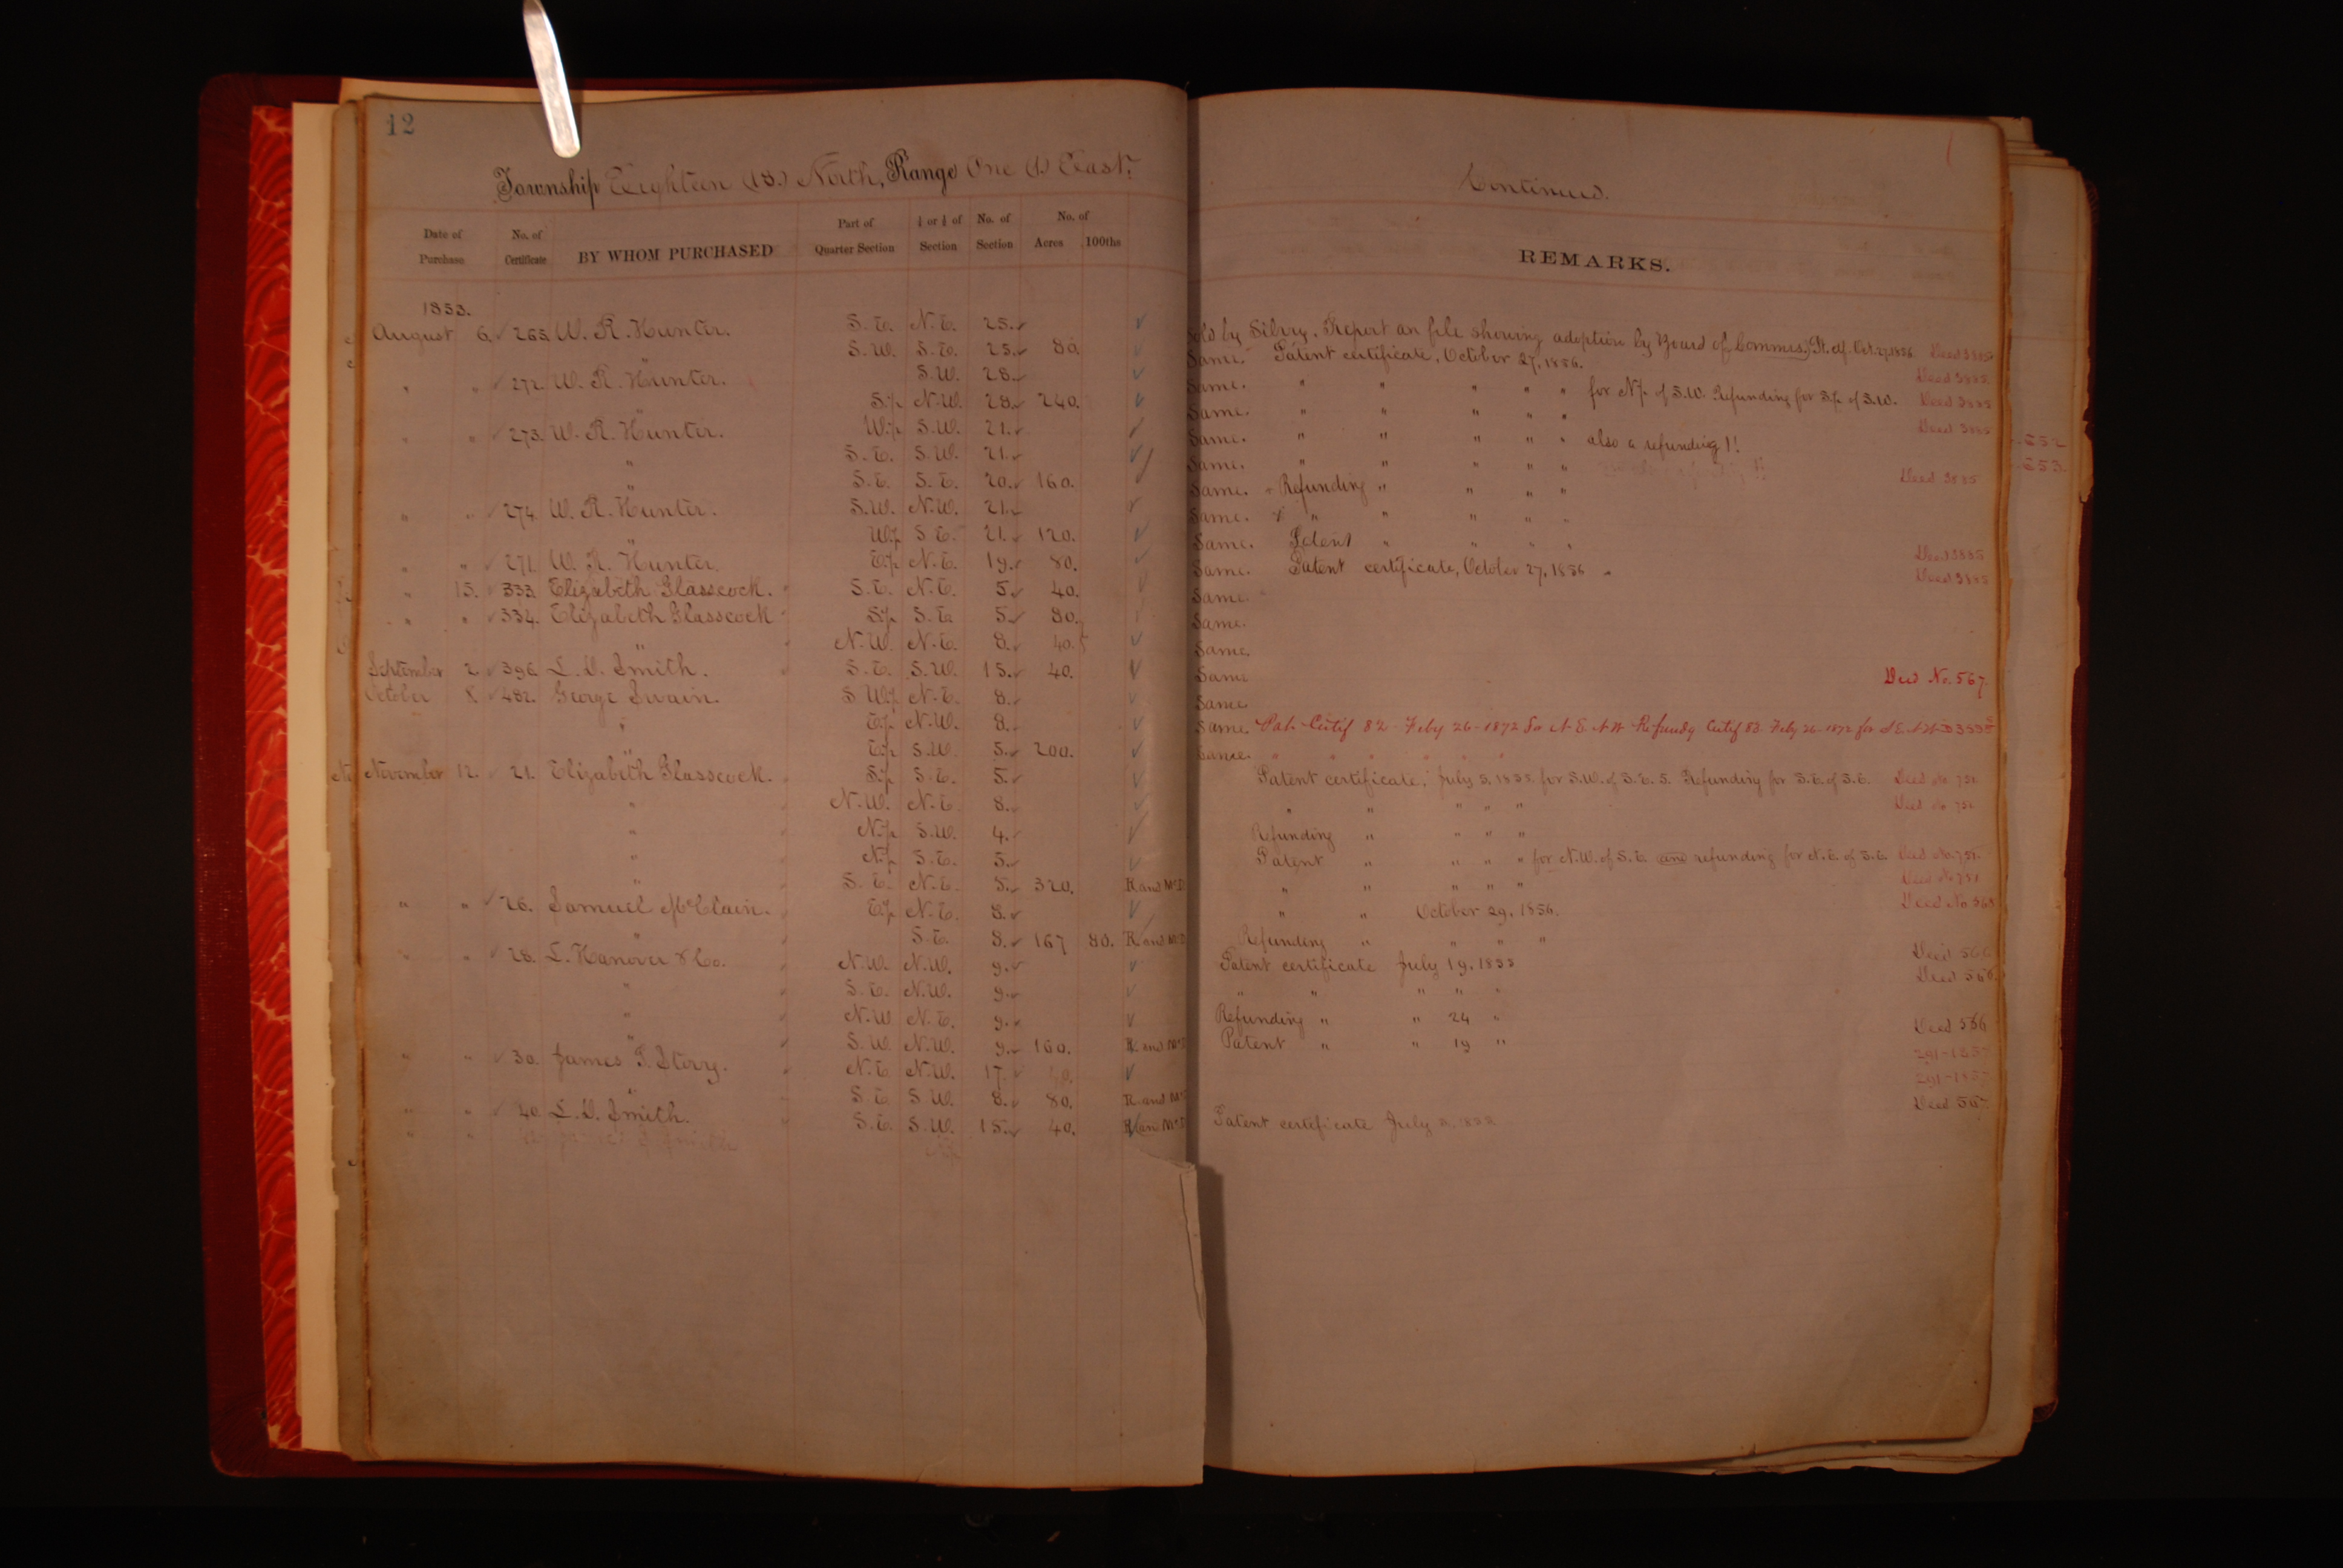 12
Township Eighteen (18.) North, Range One (1.) East.
Date of Purchase No. of Certificate BY WHOM PURCHASED Part of Quarter Section ½ or ¼ of Section No. of Section No. of Acres 100ths
1853.
August 6. 265 W. R. Hunter. S.E. N.E. 25.
" S.W. S.E. 25. 80.
" " 272 W. R. Hunter. S.W. 28.
" S.½ N.W. 28. 240.
" " 273. W. R. Hunter. W.½ S.W. 21.
" S.E. S.W. 21.
" S.E. S.E. 20. 160.
" " 274. W. R. Hunter. S.W. N.W. 21.
" W.½ S.E. 21. 120.
" " 271. W. R. Hunter. E.½ N.E. 19. 80.
" 15. 333. Elizabeth Glasscock. S.E. N.E. 5. 40.
" " 334. Elizabeth Glasscock S.½ S.E. 5. 80.
" N.W. N.E. 8. 40.
September 2. 396. L. D. Smith. S.E. S.W. 15. 40.
October 8 482. George Swain. S.W.¼ N.E. 8.
" E.½ N.W. 8.
" E.½ S.W. 5. 200.
November 12. 21. Elizabeth Glasscock. S.½ S.E. 5.
" N.W. N.E. 8.
" N.½ S.W. 4.
" N.½ S.E. 5.
" S.E. N.E. 5. 320. R and McD
" " 26. Samuel McClain. E.½ N.E. 8.
" S.E. 8. 167 80. R and McD
" " 28. L. Hanover & Co. N.W. N.W. 9.
" S.E. N.W. 9.
" N.W. N.E. 9.
" S.W. N.W. 9. 160. R. and McD
" " 30. James T. Story. N.E. N.W. 17.
" S.E. S.W. 8. 80. R. and McD
" " 40. L. D. Smith. S.E. S.W. 15. 40. R an McD
Continued.
REMARKS.
Sold by Silvry. Report on file showing adoption by Board of Commrs. Pt. ctf. Oct. 27, 1856. Deed 3885
Same. Patent certificate, October 27, 1856. Deed 3885
Same. " " " " " for N.½ of S.W. Refunding for S.½ of S.W. Deed 3885
Same. " " " " " Deed 3885
Same. " " " " " also a refunding 1!
Same. " " " " "
Same. Refunding " " " " Deed 3885
Same. " " " " "
Same. Patent " " " " Deed 3885
Same. Patent certificate, October 27, 1856 Deed 3885
Same.
Same.
Same.
Same Deed No. 567.
Same
Same. Pat. Certif 82 - Feby 26 - 1872 for N E N W Refundg Certif 83 Feby 26 - 1872 for S E N W
Same. " " " " "
Patent certificate, July 5, 1855. for S.W. of S.E. 5. Refunding for S.E. of S.E. Deed No. 751
" " " " " Deed No 751
Refunding " " " "
Patent " " " " for N.W. of S.E. and refunding for N.E. of S.E. Deed No. 751.
" " " " " Deed No 751
" " October 29, 1856. Deed No 568
Refunding " " " "
Patent certificate July 19, 1855 Deed 566
" " " " " Deed 566
Refunding " " 24 "
Patent " " 19 " Deed 566
291-1857
291-1857
Patent certificate July Deed 567.
652
653